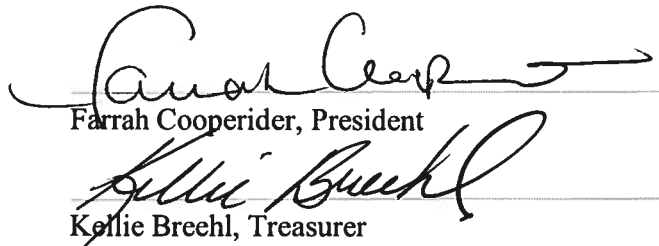 Farrah Cooper
Farrah Cooperider, President
Kellie Breehl
Kellie Breehl, Treasurer